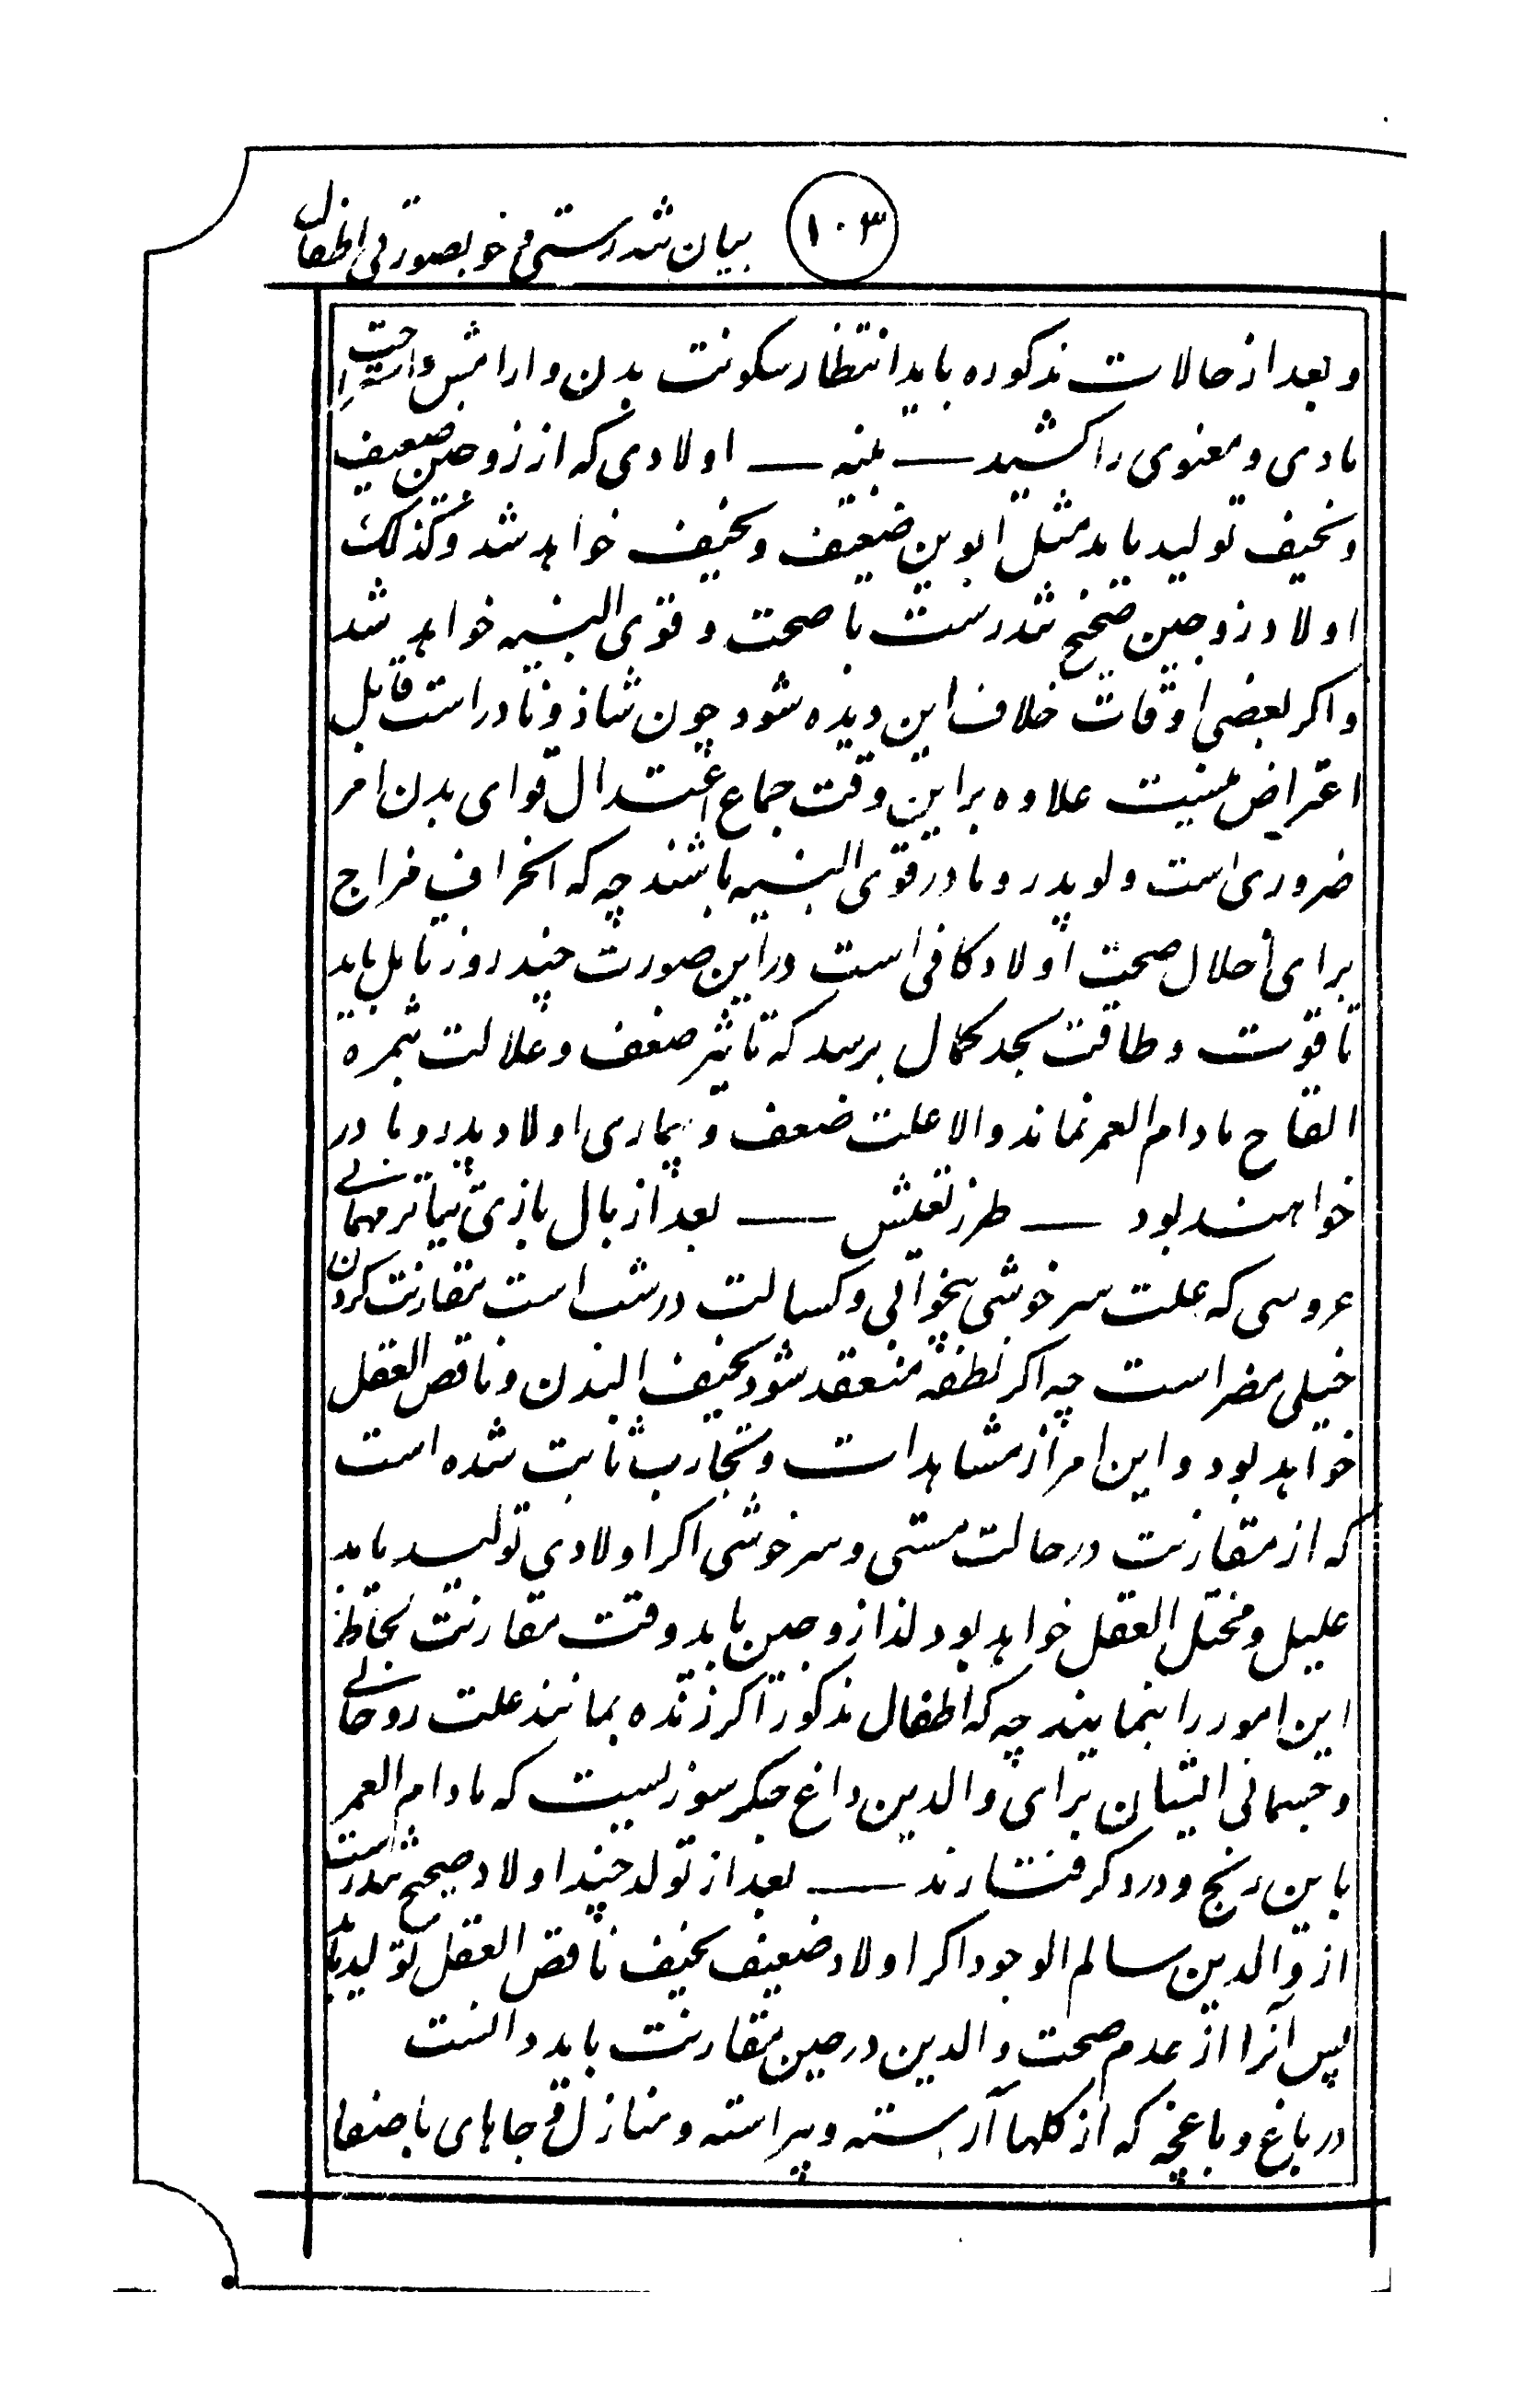 ۱۰۳ بیان تندرستی و خوبصورتی اطفال
و بعد از حالات مذکوره باید انتظار سکونت بدن و ارامش و استراحت
مادی و معنوی را کشید — بنیه — اولادی که از زوجین ضعیف
و نحیف تولید یابد مثل ابوین ضعیف و نحیف خواهد شد و کذلک
اولاد زوجین صحیح تندرست با صحت و قوی البنیه خواهد شد
و اکر بعضی اوقات خلاف این دیده شود چون شاذ و نادر است قابل
اعتراض نیست علاوه بر این وقت جماع اعتدال قوای بدن امر
ضروری است ولو پدر و مادر قوی البنیه باشند چه که انحراف مزاج
برای اخلال صحت اولاد کافی است در این صورت چند روز تامل باید
تا قوت و طاقت بحد کمال برسد که تاثیر ضعف و علالت ثمره
القاح مادام العمر نماند والا علت ضعف و بیماری اولاد پدر و مادر
خواهند بود — طرز تعیش — بعد از بال بازی تیاتر مهمانی
عروسی که علت سرخوشی بیخوابی و کسالت در شب است مقارنت کردن
خیلی مضر است چه اکر نطفه منعقد شود نحیف البدن و ناقص العقل
خواهد بود و این امر از مشاهدات و تجارب ثابت شده است
که از مقارنت در حالت مستی و سرخوشی اکر اولادی تولید یابد
علیل و مختل العقل خواهد بود لذا زوجین باید وقت مقارنت لحاظ
این امور را بنمایند چه که اطفال مذکور اکر زنده بمانند علت روحانی
و جسمانی ایشان برای والدین داغ جکر سوزیست که مادام العمر
باین رنج و درد کرفتارند — بعد از تولد چند اولاد صحیح تندرست
از والدین سالم الوجود اکر اولاد ضعیف نحیف ناقص العقل تولید یابد
پس آنرا از عدم صحت والدین در حین مقارنت باید دانست
در باغ و باغچه که از کلها آراسته و پیراسته و منازل و جاهای با صفا